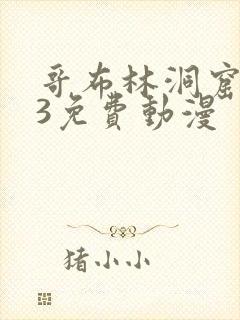 哥布林洞窟
3免費動漫
猪小小